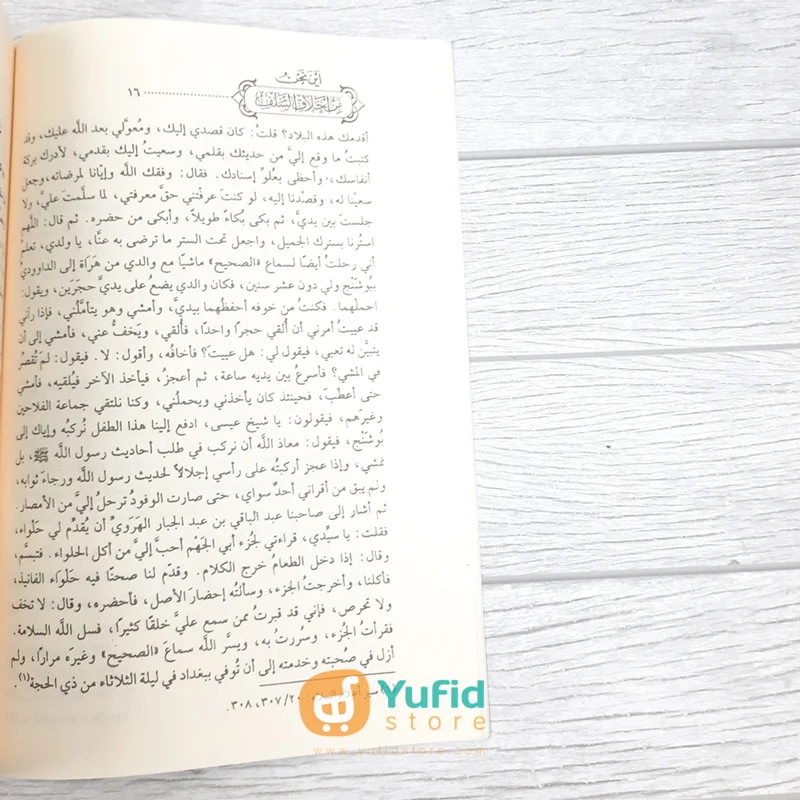 أين نحن
من أخلاق السلف
١٦
أقدمك هذه البلاد؟ قلتُ: كان قصدي إليك، ومُعوَّلي بعد اللَّه عليك، وقد
كتبتُ ما وقع إليَّ من حديثك بقلمي، وسعيتُ إليك بقدمي، لأدرك بركة
أنفاسك، وأحظى بعُلو إسنادك. فقال: وفقك اللَّه وإيَّانا لمرضاته، وجعل
سعيَنا له، وقصدَنا إليه، لو كنتَ عرفْتني حقَّ معرفتي، لما سلَّمتَ عليَّ، ولا
جلستَ بين يديَّ، ثم بكى بُكاءً طويلاً، وأبكى من حضره. ثم قال: اللَّهم
استُرنا بسترك الجميل، واجعل تحت الستر ما ترضى به عنَّا، يا ولدي، تعلمُ
أني رحلتُ أيضًا لسماع «الصحيح» ماشيًا مع والدي من هَرَاة إلى الداووديّ
ببُوشَنْج ولي دون عشر سنين، فكان والدي يضعُ على يديَّ حجرَين، ويقول:
احملْهما. فكنتُ من خوفه أحفظُهما بيديَّ، وأمشي وهو يتأمَّلُني، فإذا رآني
قد عييتُ أمرني أن أُلقي حجرًا واحدًا، فأُلقي، ويَخفُّ عني، فأمشي إلى أن
يتبيَّن له تعبي، فيقول لي: هل عييتَ؟ فأخافُه، وأقول: لا. فيقول: لمَ تُقصِّرُ
في المشي؟ فأسرعُ بين يديه ساعة، ثم أعجزُ، فيأخذ الآخر فيُلقيه، فأمشي
حتى أعطَبَ، فحينئذ كان يأخذني ويحملُني، وكنا نلتقي جماعة الفلاحين
وغيرَهم، فيقولون: يا شيخ عيسى، ادفع إلينا هذا الطفل نُركبُه وإياك إلى
بُوشَنْج، فيقول: معاذ اللَّه أن نركب في طلب أحاديث رسول اللَّه ﷺ، بل
نمشي، وإذا عجز أركبتُه على رأسي إجلالاً لحديث رسول اللَّه ورجاءَ ثوابه،
ولم يبق من أقراني أحدٌ سواي، حتى صارت الوفودُ ترحلُ إليَّ من الأمصار.
ثم أشار إلى صاحبنا عبد الباقي بن عبد الجبار الهَرَويِّ أن يُقدِّم لي حَلْواء،
فقلت: يا سيِّدي، قراءتي لجُزء أبي الجَهْم أحبُّ إليَّ من أكل الحلواء. فتبسَّم،
وقال: إذا دخل الطعامُ خرج الكلام. وقدَّم لنا صحنًا فيه حَلْواء الفانيذ،
فأكلنا، وأخرجتُ الجزء، وسألتُه إحضارَ الأصل، فأحضره، وقال: لا تخف
ولا تحرص، فإني قد قبرتُ ممن سمع عليَّ خلقًا كثيرًا، فسل اللَّه السلامة.
فقرأتُ الجُزء، وسُررتُ به، ويسَّر اللَّه سماعَ «الصحيح» وغيرَه مرارًا، ولم
أزل في صُحبته وخدمته إلى أن تُوفي ببغداد في ليلة الثلاثاء من ذي الحجة(١).
٢٠/٣٠٧، ٣٠٨.
Yufid
store
www.yufidstore.com